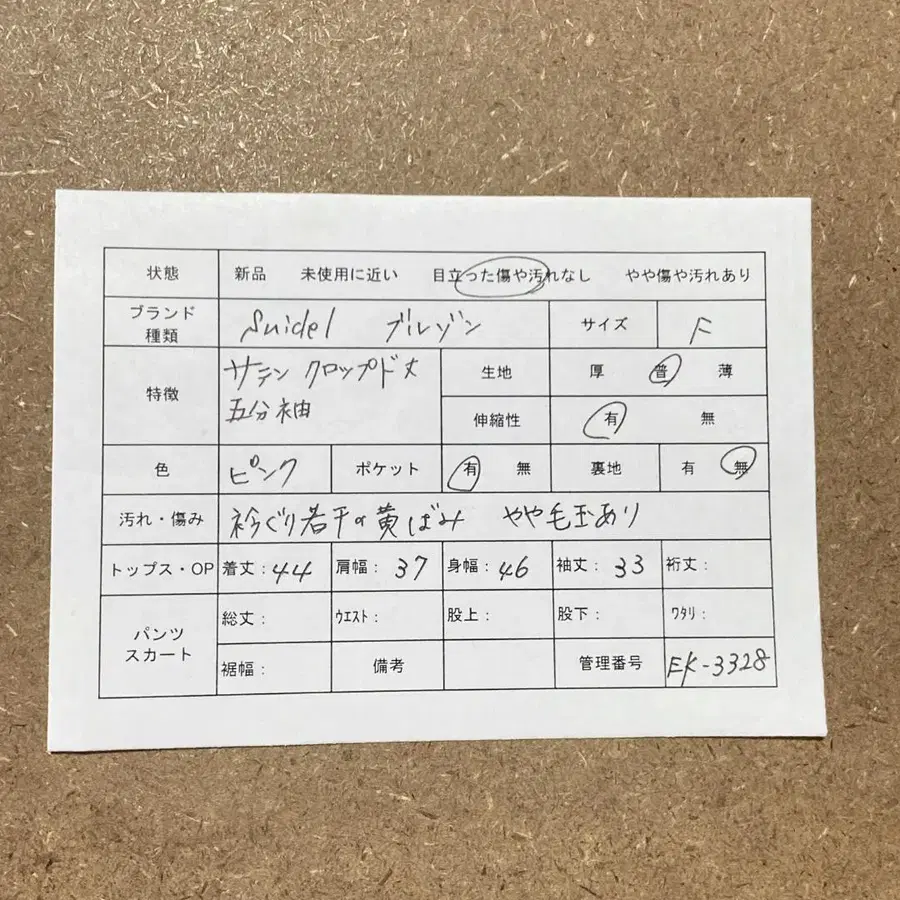 状態 新品 未使用に近い 目立った傷や汚れなし やや傷や汚れあり
ブランド種類 Snidel ブルゾン サイズ F
特徴 サテン クロップド丈
五分袖
生地 厚 普 薄
伸縮性 有 無
色 ピンク ポケット 有 無 裏地 有 無
汚れ・傷み 衿ぐり若干の黄ばみ やや毛玉あり
トップス・OP 着丈：44 肩幅：37 身幅：46 袖丈：33 裄丈：
パンツ
スカート
総丈： ｳｴｽﾄ： 股上： 股下： ﾜﾀﾘ：
裾幅： 備考 管理番号 EK-3328